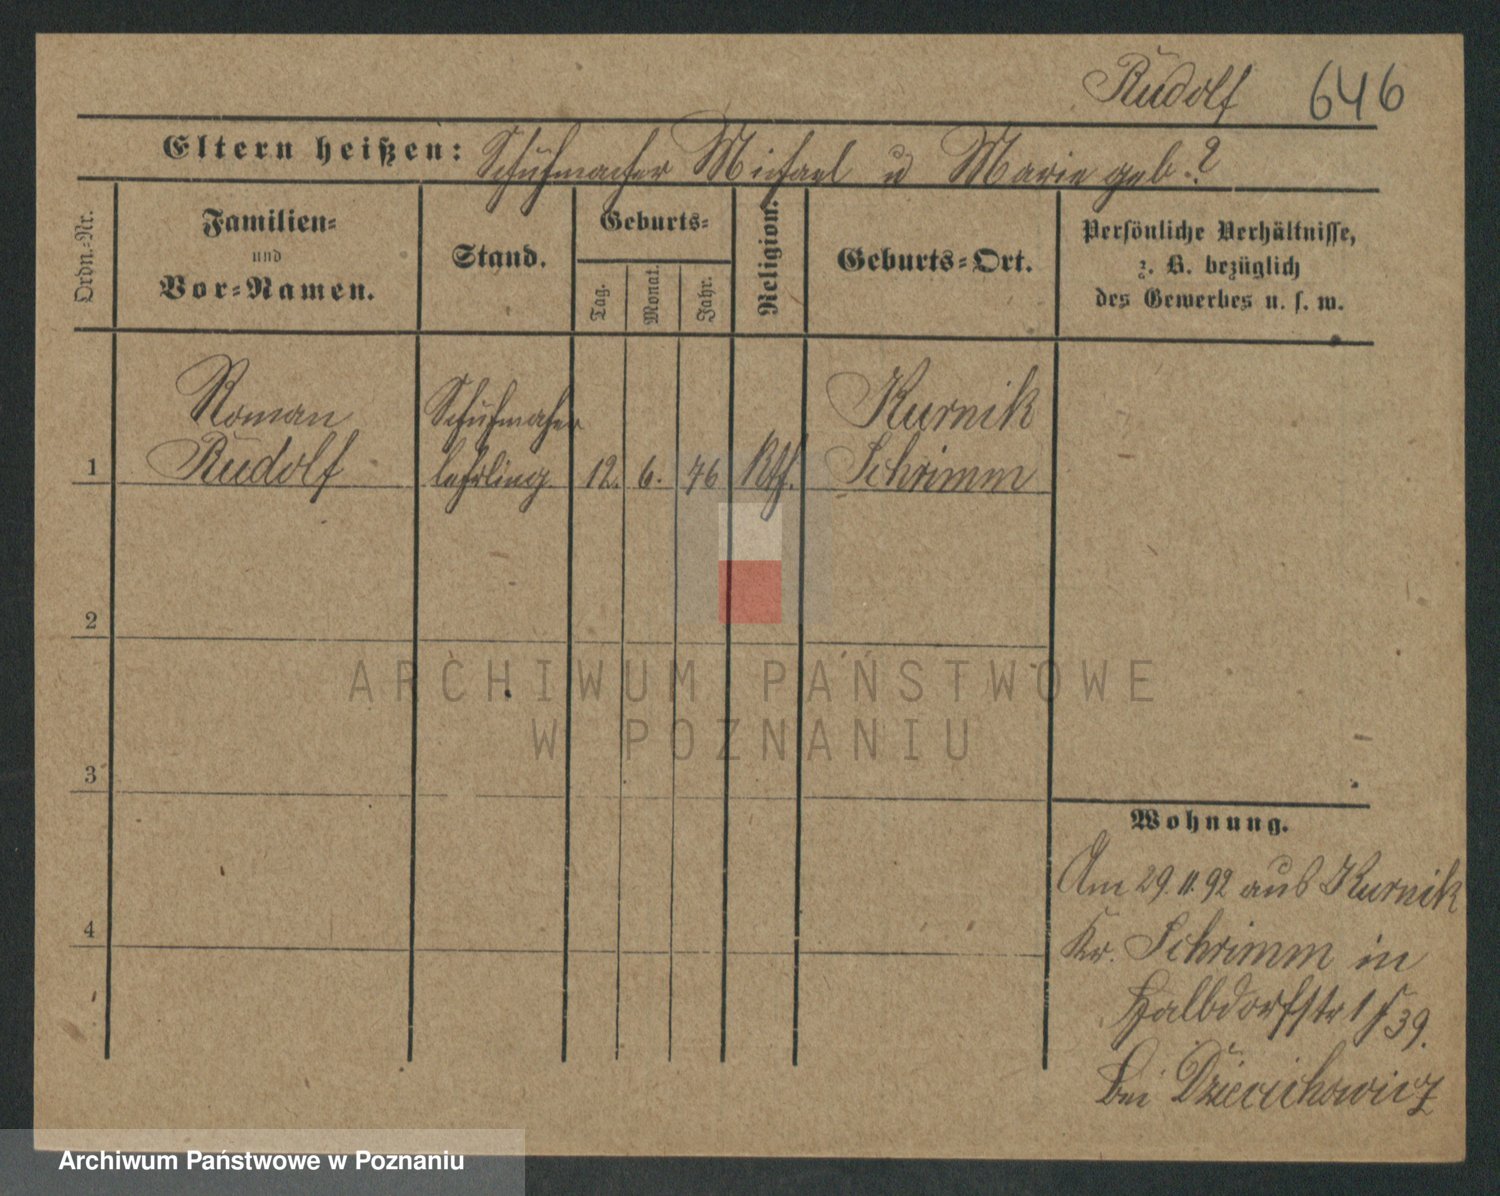 Rudolf 646
Eltern heißen: Schuhmacher Michael u Marie geb. ?
Ordn.-Nr.
Familien-
und
Vor-Namen.
Stand.
Geburts-
Tag.
Monat.
Jahr.
Religion.
Geburts-Ort.
Persönliche Verhältnisse,
z. B. bezüglich
des Gewerbes u. s. w.
Roman Schuhmacher Kurnik
1 Rudolf lehrling. 12. 6. 76 Kth. Schrimm
2
3
4
Wohnung.
Am 29.11.92 aus Kurnik
Kr. Schrimm in
Halbdorfstr 39.
bei Dziecichowicz
ARCHIWUM PAŃSTWOWE
W POZNANIU
Archiwum Państwowe w Poznaniu